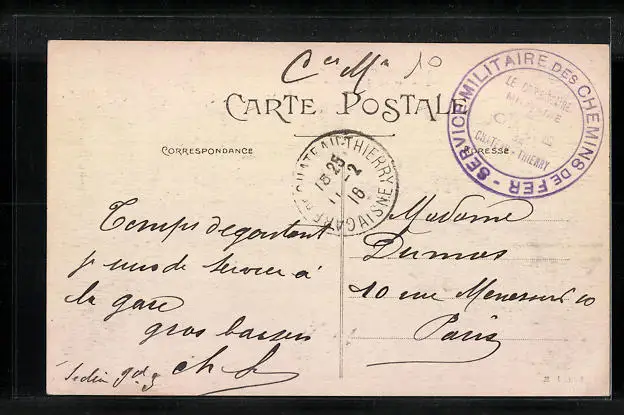 Cce Mre 10
CARTE POSTALE
CORRESPONDANCE
ADRESSE
SERVICE MILITAIRE DES CHEMINS DE FER
LE COMMISSAIRE
MILITAIRE
CHATEAU-THIERRY
GARE DE CHATEAU-THIERRY
15 25
11 -2
16
(AISNE)
Temps dégoutant
je suis de service à
la gare
gros baisers
Ch
Madame
Dumas
10 rue
Paris